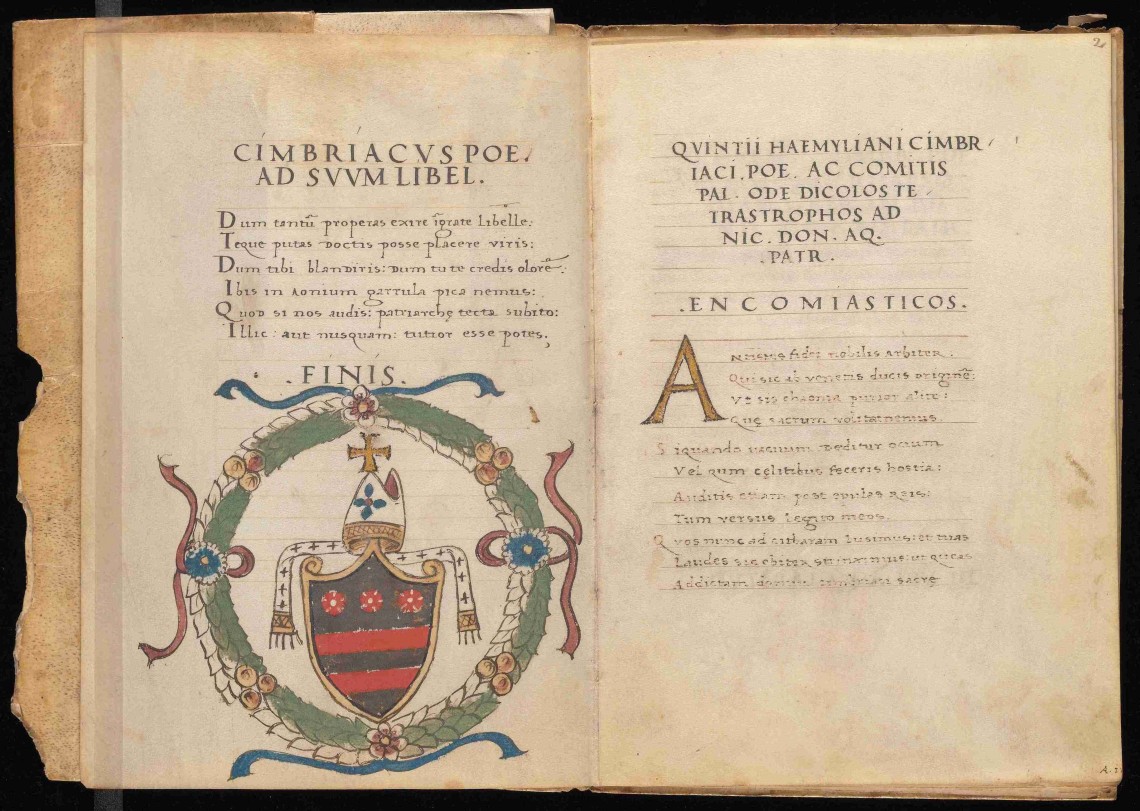 CIMBRIACVS POE.
AD SVVM LIBEL.
Dum tantū properas exire īgrate libelle:
Teque putas doctis posse placere viris:
Dum tibi blandiris: dum tu te credis olorē:
Ibis in aonium garrula pica nemus:
Quod si nos audis: patriarchę tecta subito:
Illic: aut nusquam: tutior esse potes;
. FINIS.
2
QVINTII HAEMYLIANI CIMBR
IACI. POE. AC COMITIS
PAL. ODE DICOLOS TE
TRASTROPHOS AD
NIC. DON. AQ.
.PATR.
.ENCOMIASTICOS.
A fidei nobilis arbiter:
Qui sic ab venetis ducis originē:
Vt sis chaonia purior alite:
Quę sacrum volitat nemus.
Siquando vacuum deditur ocium
Vel qum cęlitibus feceris hostia:
Auditis etiam post epulas
Tum versus legito meos.
Quos nunc ad citharam lusimus: et tuas
Laudes sic
Addictam sacrę